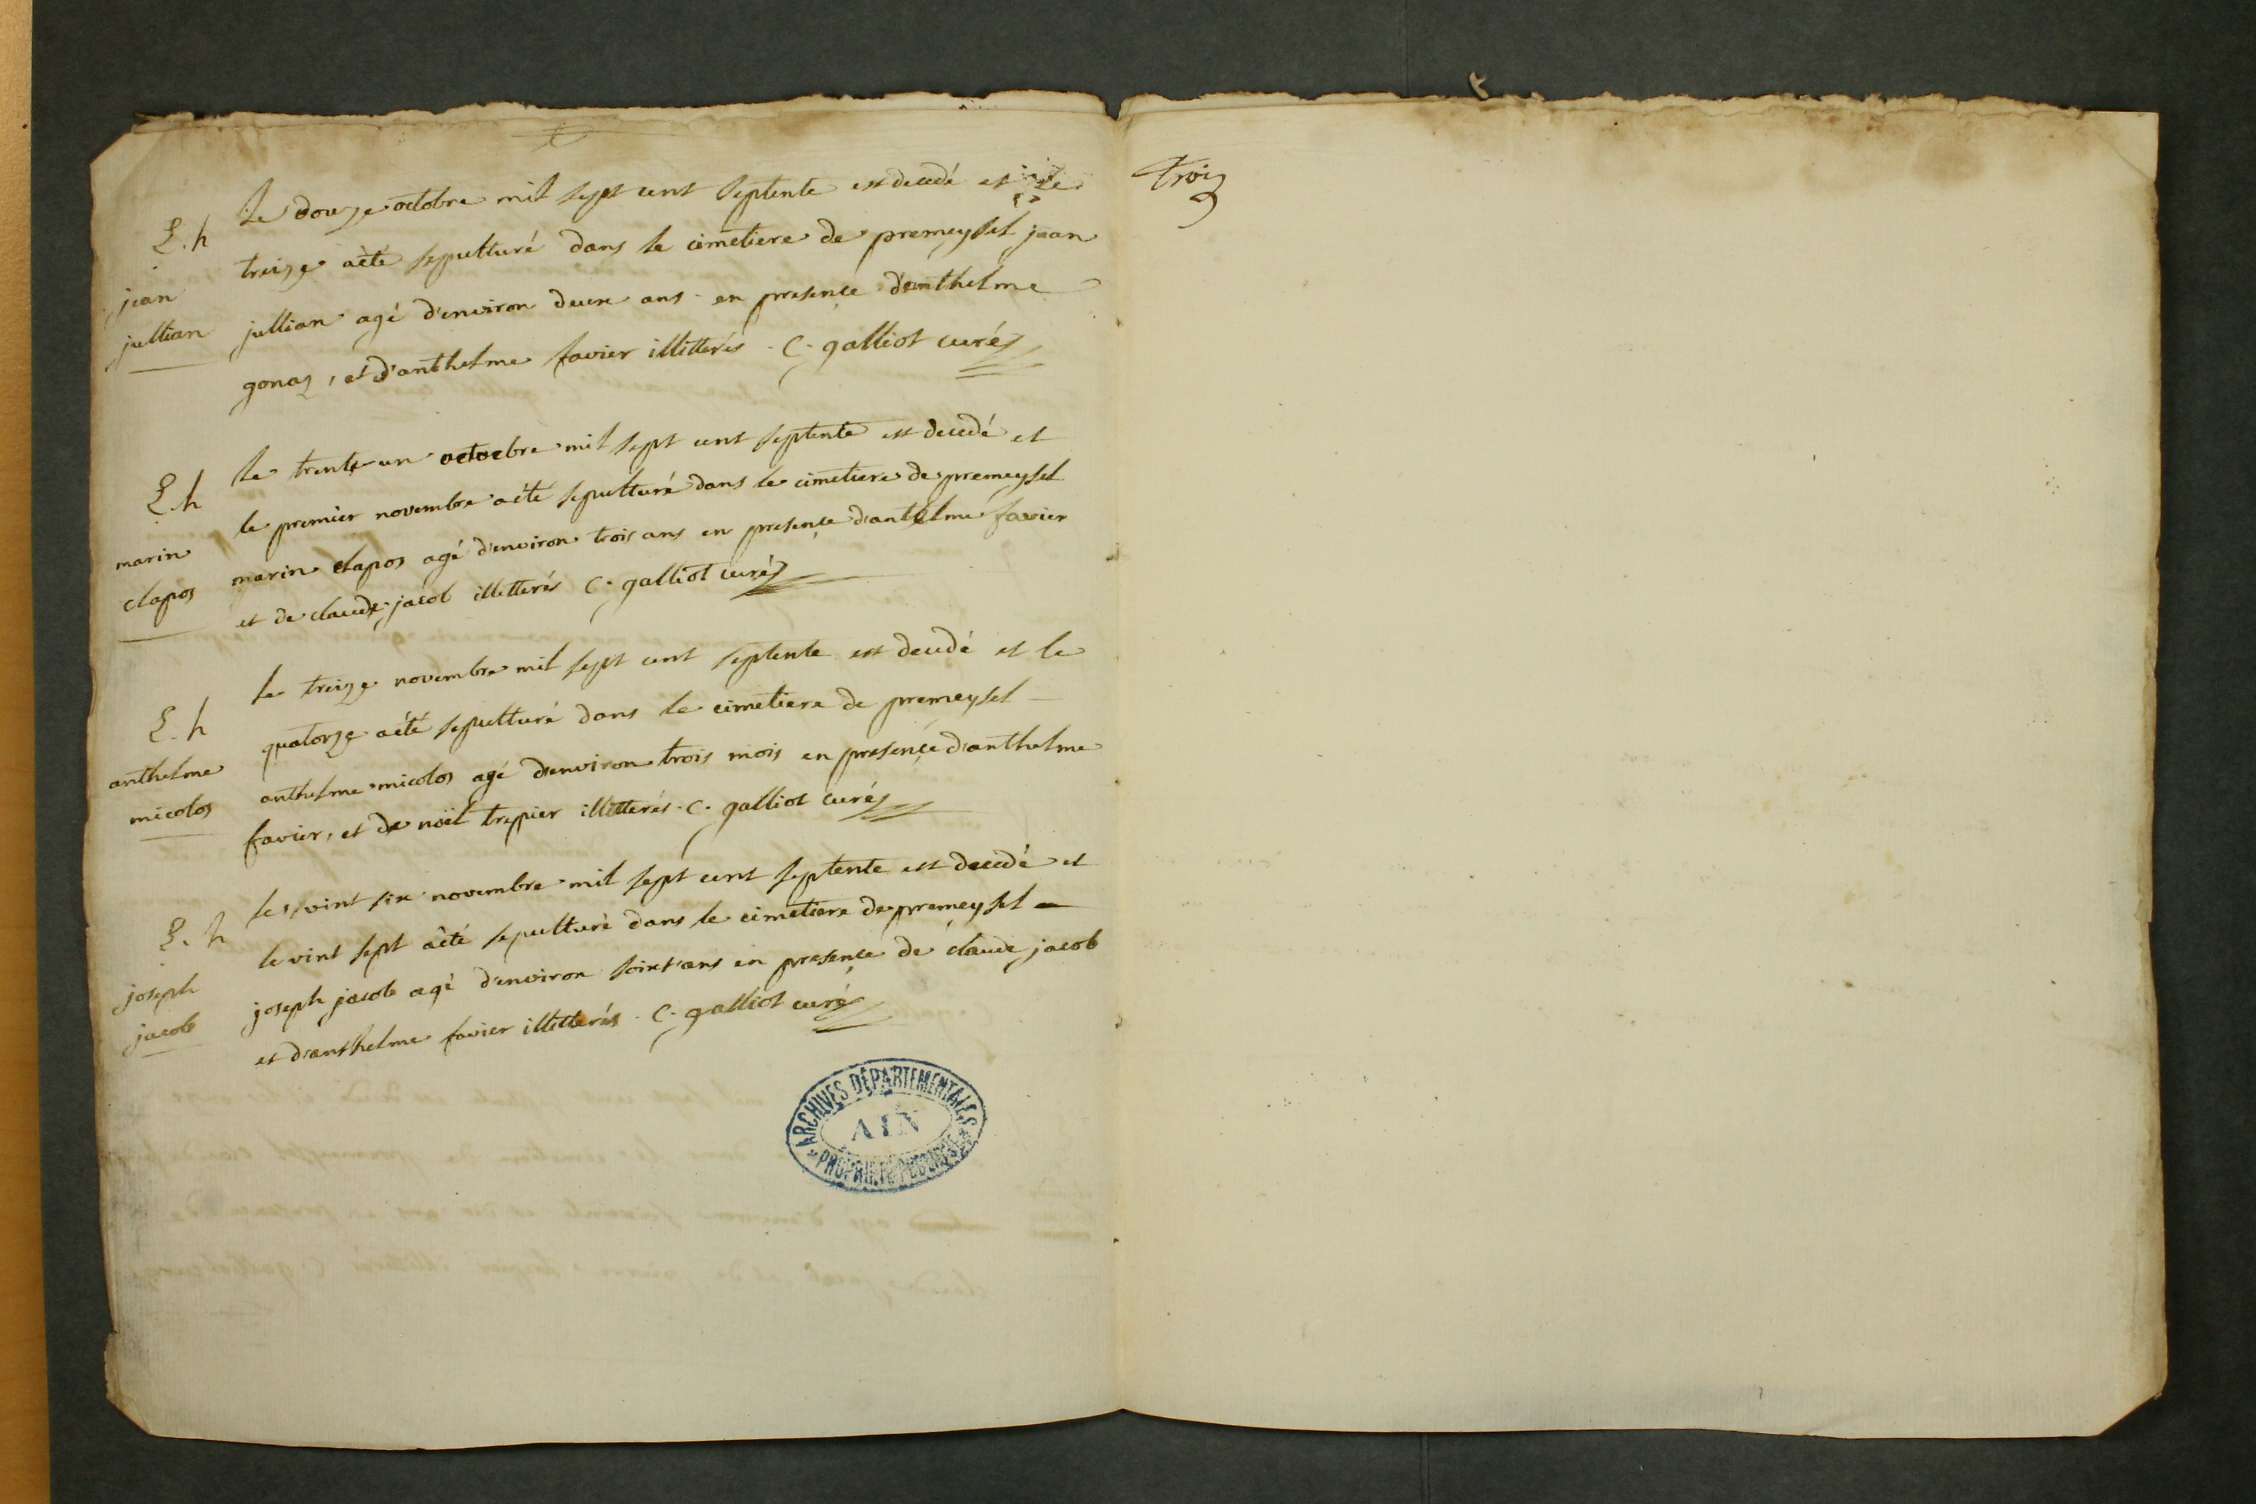 S. h
jean
jullian
Le douze octobre mil sept cent septente est decedé et le
treize aèté sepulturé dans le cimetiere de premeysel jean
jullian agé d'environ deux ans en presençe d'anthelme
gonaz, et d'anthelme favier illitterés . C. galliot curé
S. h
marin
clapos
le trente un octoebre mil sept cent septente est decedé et
le premier novembre aété sepulturé dans le cimetiere de premeysel
marin clapos agé d'environ trois ans en presençe d'anthelme favier
et de claude jacob illitterés C. galliot curé
S. h
anthelme
micolos
le treize novembre mil sept cent septente est decedé et le
quatorze aété sepulturé dans le cimetiere de premeysel
anthelme micolos agé d'environ trois mois en presençe d'anthelme
favier, et de noël treppier illitterés . C. galliot curé
S. h
joseph
jacob
le vint six novembre mil sept cent septente est decedé et
le vint sept aèté sepulturé dans le cimetiere de premeysel
joseph jacob agé d'environ soixt'ans en presençe de claude jacob
et d'anthelme favier illitterés . C. galliot curé
ARCHIVES DÉPARTEMENTALES
AIN
PROPRIÉTÉ PUBLIQUE
Troiz